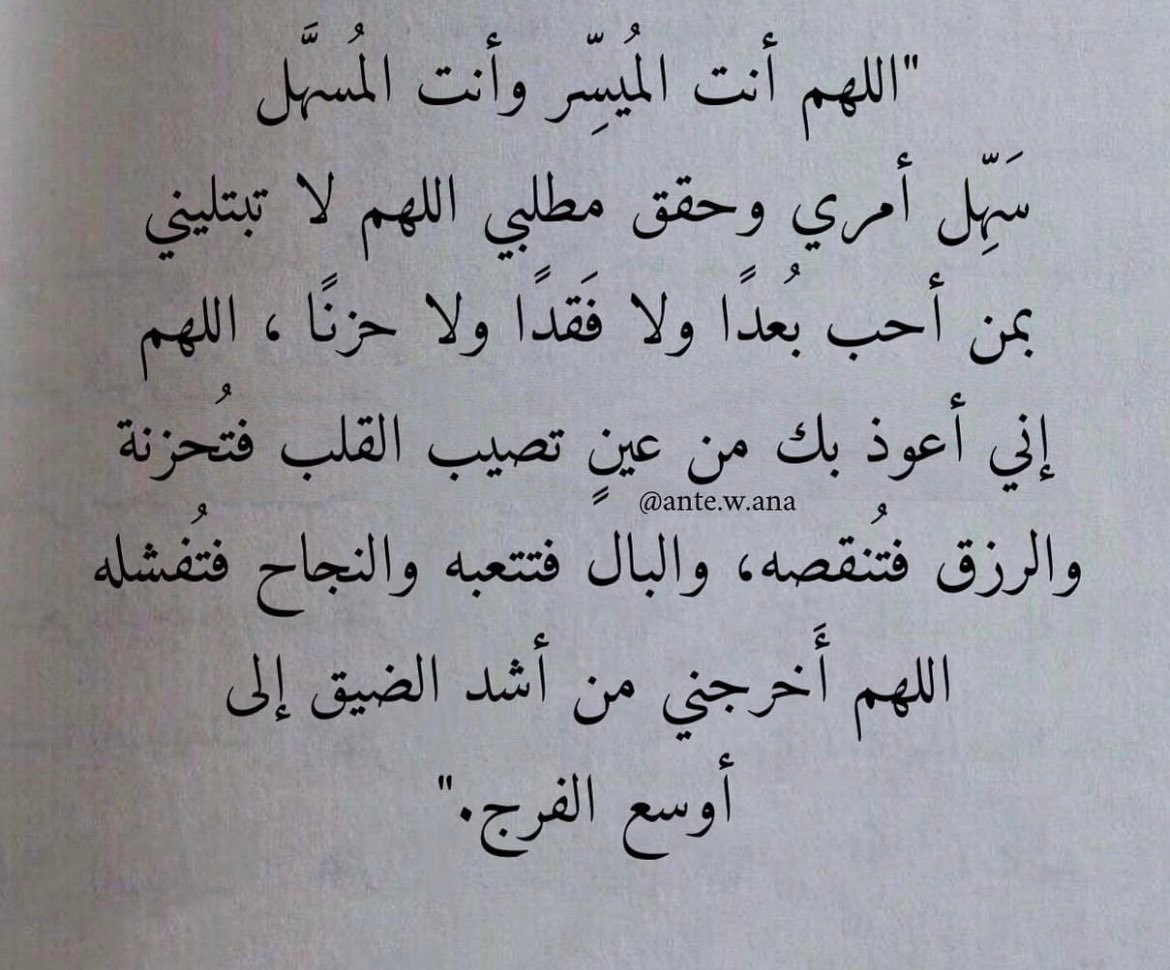 "اللهم أنت المُيسِّر وأنت المُسهَّل
سَهِّل أمري وحقق مطلبي اللهم لا تبتليني
بمن أحب بُعدًا ولا فَقدًا ولا حزنًا ، اللهم
إني أعوذ بك من عينٍ تصيب القلب فتُحزنة
@ante.w.ana
والرزق فتُنقصه، والبال فتتعبه والنجاح فتُفشله
اللهم أَخرجني من أشد الضيق إلى
أوسع الفرج."